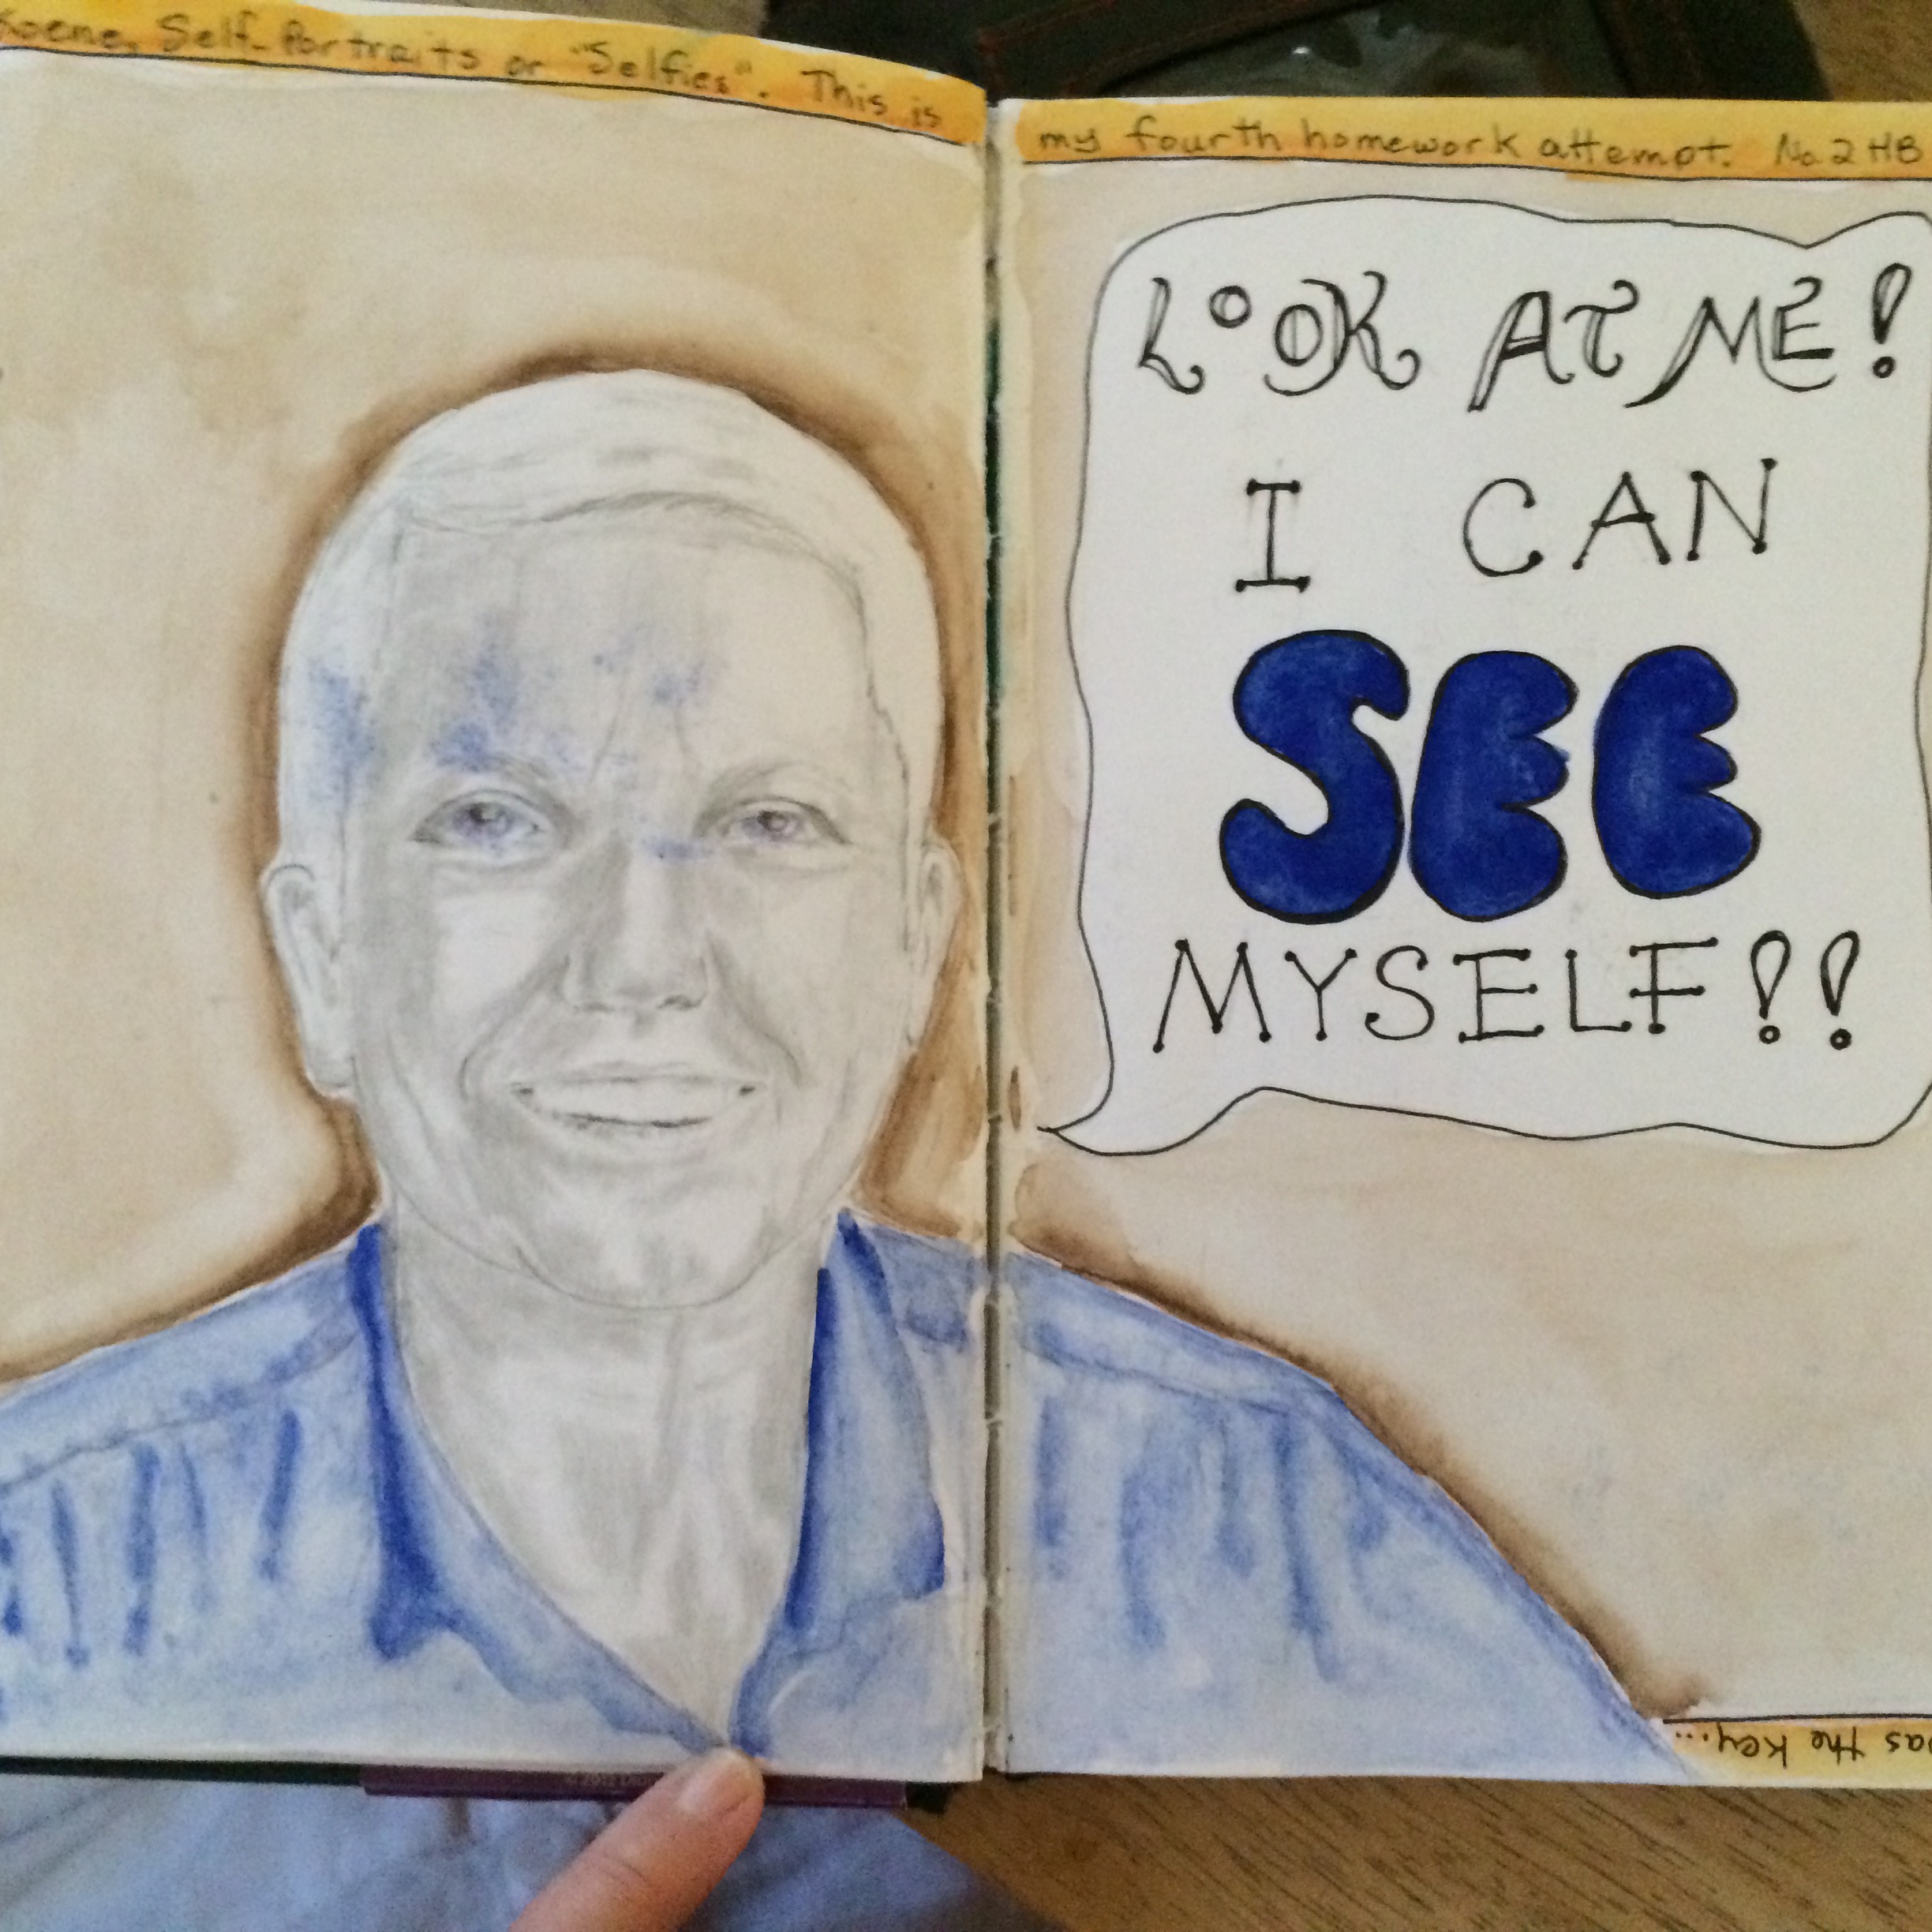 Self-Portraits or "Selfies". This is
my fourth homework attempt. No. 2 HB
LOOK AT ME!
I CAN
SEE
MYSELF!!
the key...